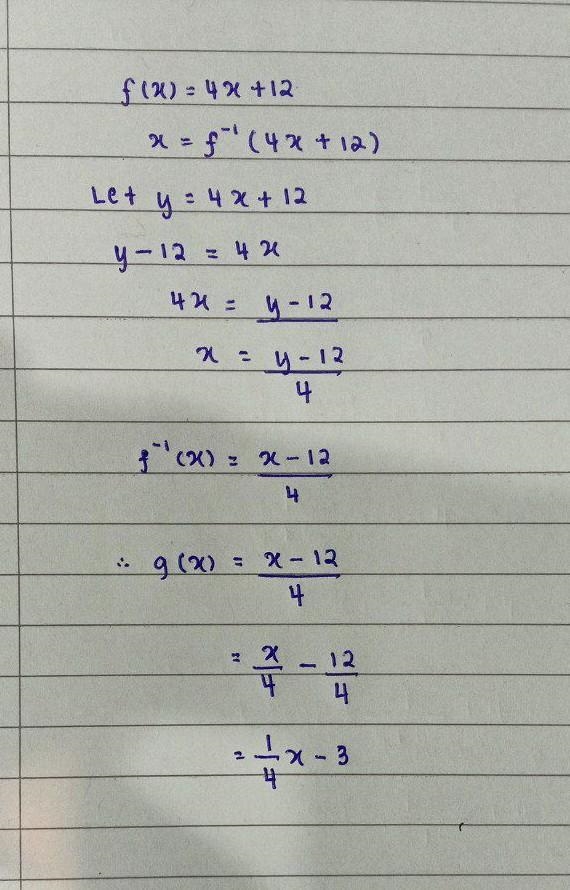 f(x) = 4x + 12
x = f⁻¹(4x + 12)
Let y = 4x + 12
y - 12 = 4x
4x = y - 12
x = (y - 12)/4
f⁻¹(x) = (x - 12)/4
∴ g(x) = (x - 12)/4
= x/4 - 12/4
= 1/4 x - 3